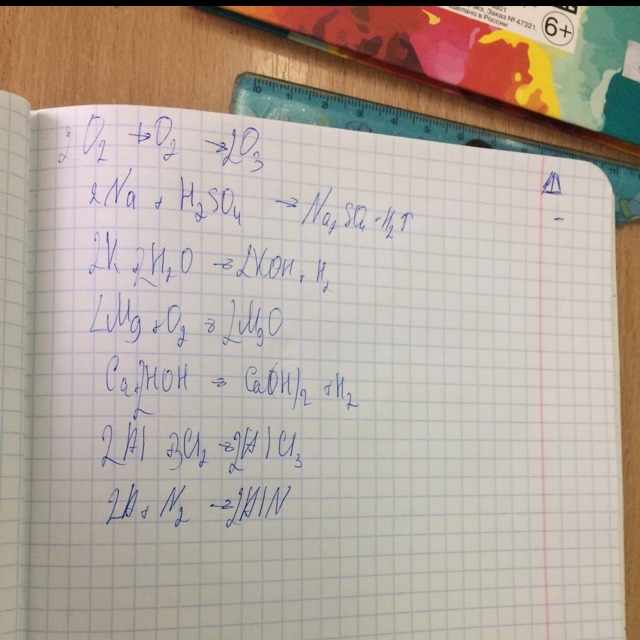 4801
каз. Заказ № 47321.
делано в России
6+
10 11 8 7 6 5
2O₂ → O₂ → 2O₃
2Na + H₂SO₄ → Na₂SO₄ + H₂↑
2K 2H₂O → 2KOH + H₂
2Mg + O₂ → 2MgO
Ca + 2HOH → Ca(OH)₂ + H₂
2Al + 3Cl₂ → 2AlCl₃
2A + N₂ → 2AlN